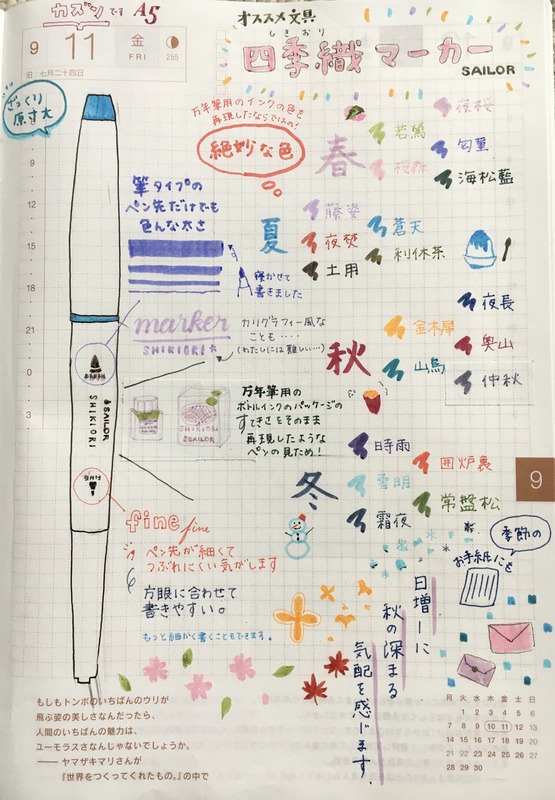 カズンです A5
9 11 金
FRI
255
旧:七月二十四日
オススメ文具
しきおり
四季織マーカー
SAILOR
ざっくり
原寸大
万年筆用のインクの色を
再現したならではの!
絶妙な色
筆タイプの
ペン先だけでも
色んな太さ
寝かせて
書きました
marker
SHIKIORI☆
カリグラフィー風な
ことも・・・・
(わたしには難しい…)
万年筆用の
ボトルインクのパッケージの
すてきさをそのまま
再現したような
ペンの見ため!
SHIKIORI
SAILOR
SHIKIORI
SAILOR
FINE
fine fine
ペン先が細くて
つぶれにくい気がします
方眼に合わせて
書きやすい。
もっと細かく書くこともできます。
春
夜桜
若鶯
匂菫
桜森
海松藍
夏
藤姿
蒼天
夜焚
利休茶
土用
秋
夜長
金木犀
奥山
山鳥
仲秋
冬
時雨
囲炉裏
雪明
常盤松
霜夜
季節の
お手紙にも
日増しに
秋の深まる
気配を感じます。
9
9
12
15
18
21
0
3
もしもトンボのいちばんのウリが
飛ぶ姿の美しさなんだったら、
人間のいちばんの魅力は、
ユーモラスさなんじゃないでしょうか。
―― ヤマザキマリさんが
『世界をつくってくれたもの。』の中で
月 火 水 木 金 土 日
1 2 3 4 5 6
7 8 9 10 11 12 13
14 15 16 17 18 19 20
21 22 23 24 25 26 27
28 29 30